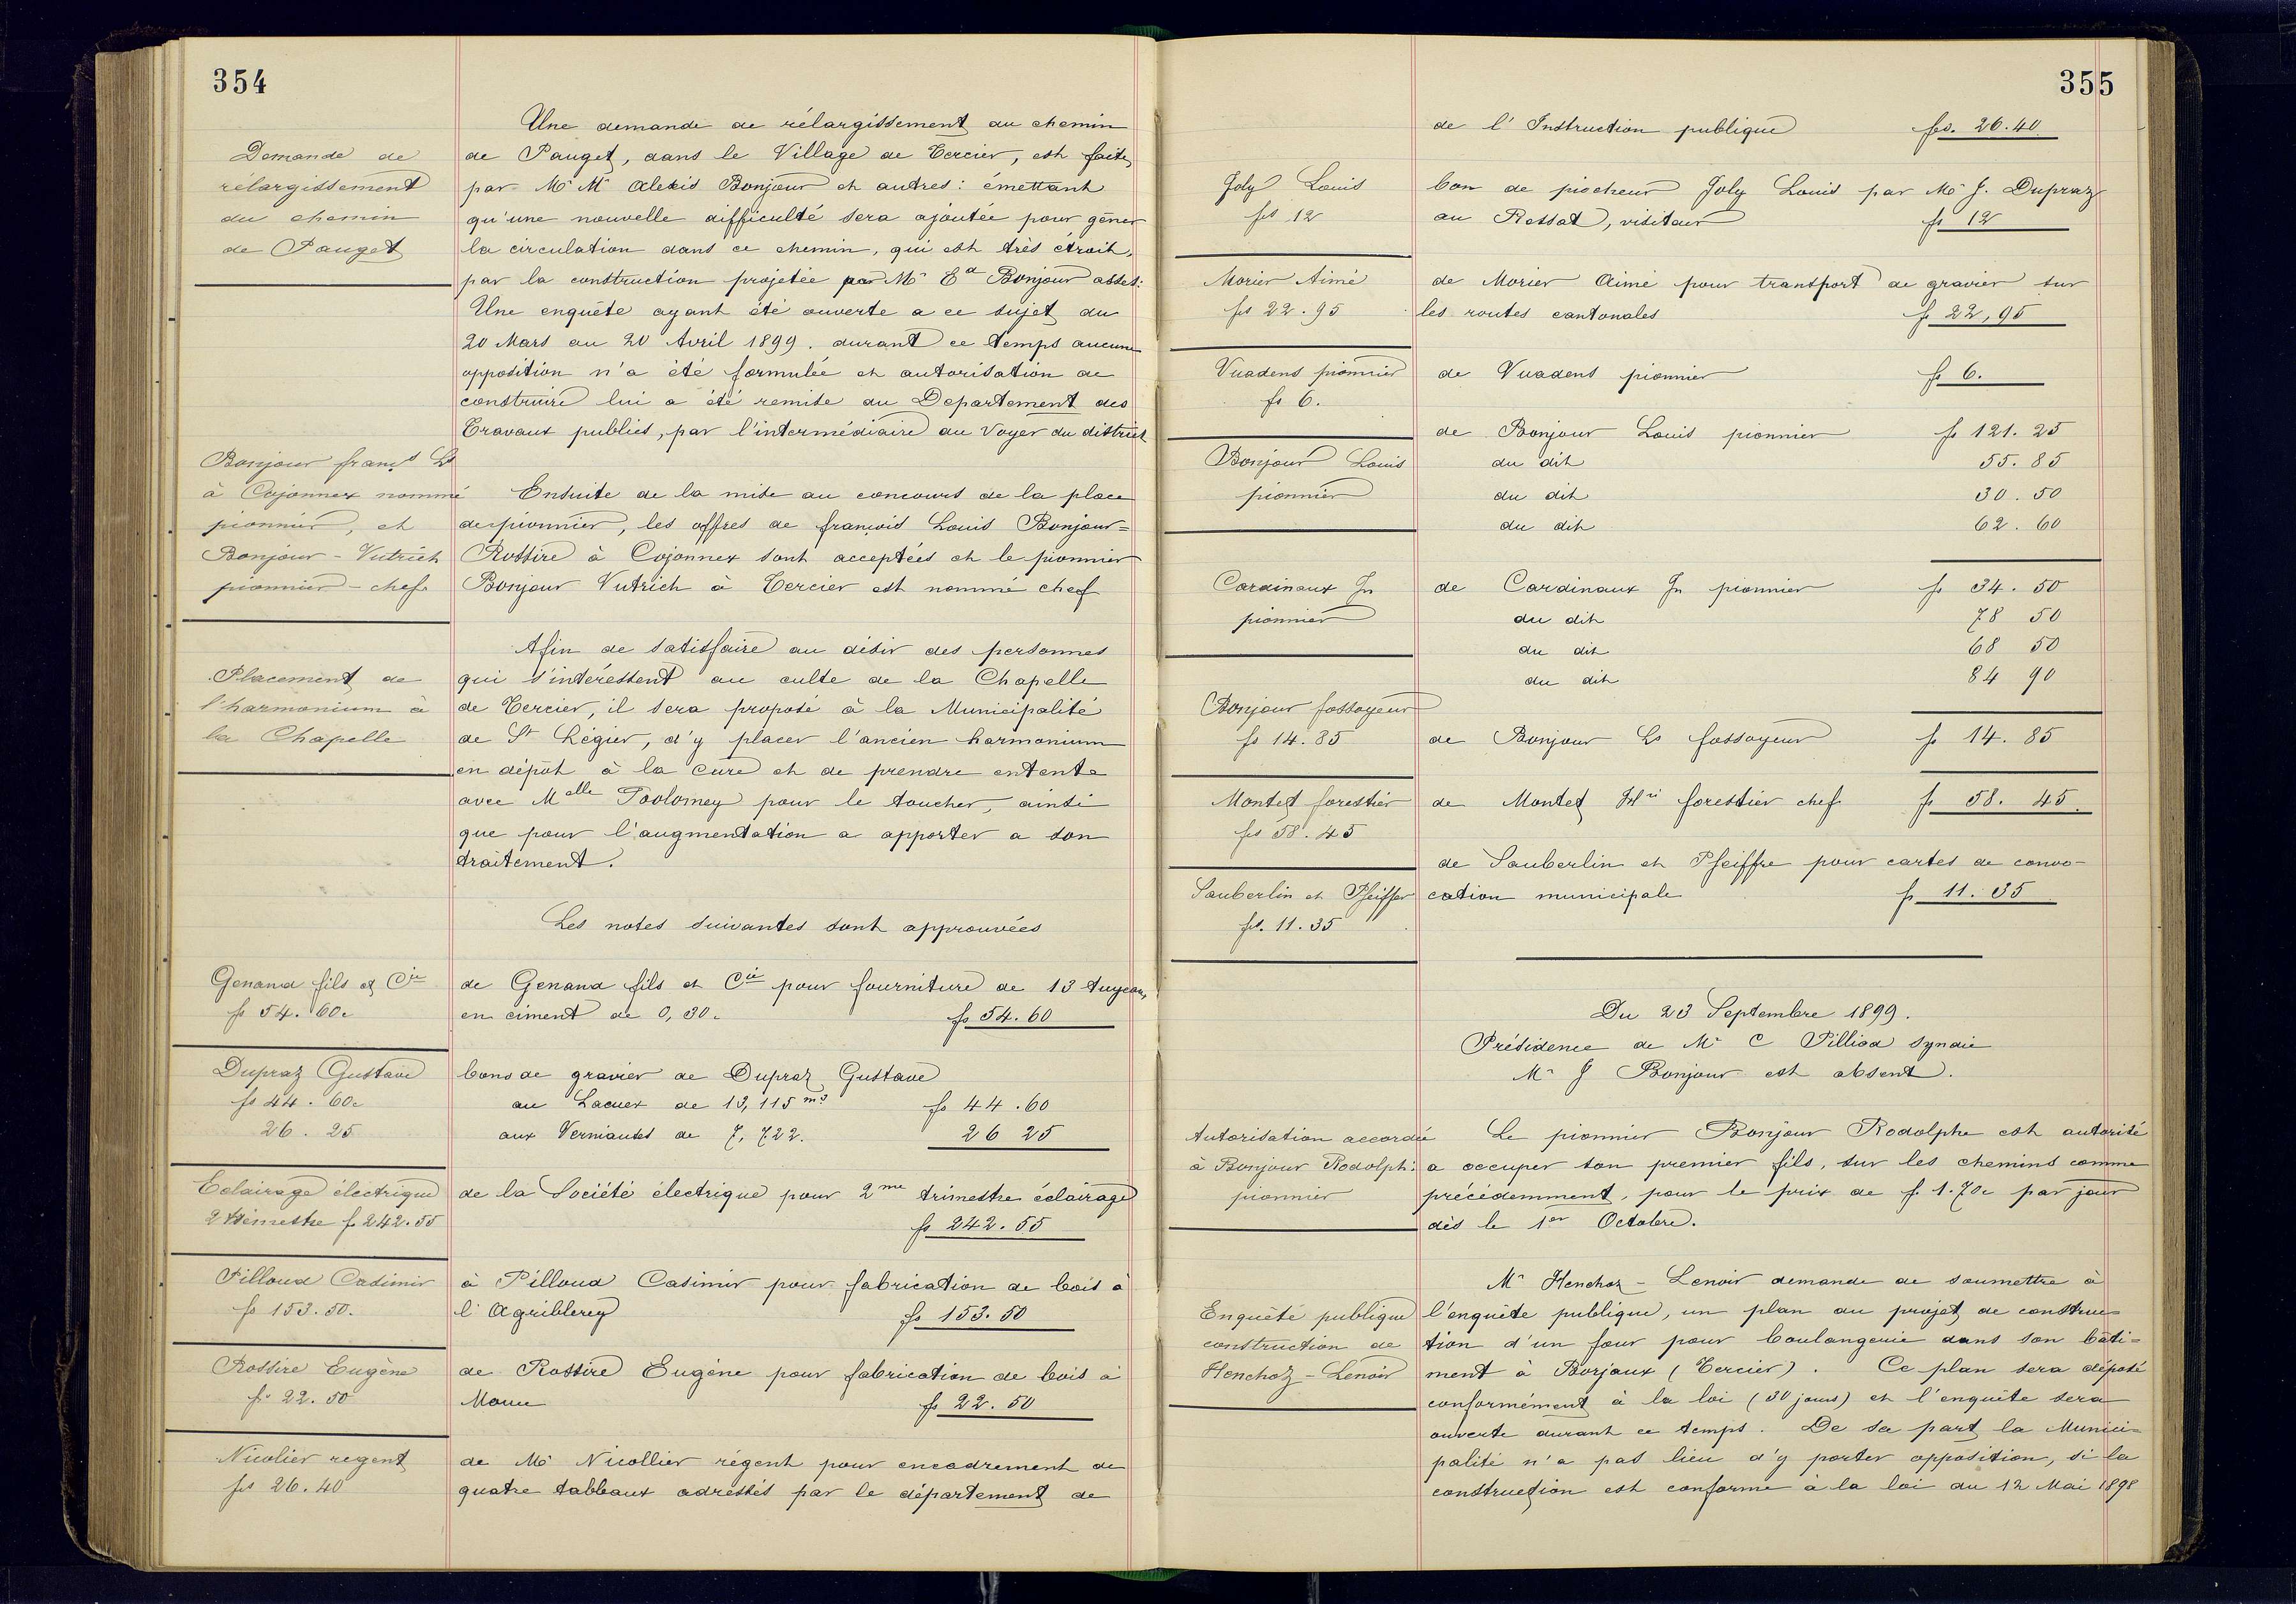 354
Une demande de rélargissement du chemin
Demande de
rélargissement
du chemin
de Pauget
de Pauget, dans le Village de Tercier, est faite,
par Mr Mr Alexis Bonjour et autres: émettant
qu'une nouvelle difficulté sera ajoutée pour gêner
la circulation dans ce chemin, qui est très étroit,
par la construction projetée par Mr Ed Bonjour asses:
Une enquête ayant été ouverte a ce sujet du
20 Mars au 20 Avril 1899. durant ce temps aucune
opposition n'a été formulée et autorisation de
construire lui a été remise du Departement des
Travaux publics, par l'intermédiaire du Voyer du district
Bonjour franç.s Ls
à Cojonnex nommé
pionnier, et
Bonjour - Vutrich
pionnier - chef
Ensuite de la mise au concours de la place
de pionnier, les offres de françois Louis Bonjour=
Rossire à Cojonnex sont acceptées et le pionnier
Bonjour Vutrich à Tercier est nommé chef
Placement de
l'harmonium à
la Chapelle
Afin de satisfaire au désir des personnes
qui s'intéressent au culte de la Chapelle
de Tercier, il sera proposé à la Municipalité
de St Légier, d'y placer l'ancien harmonium
en dépôt à la cure et de prendre entente
avec Melle pour le toucher, ainsi
que pour l'augmentation a apporter a son
traitement.
Les notes suivantes sont approuvées
Genand fils et Cie
fs 54.60c
de Genand fils et Cie pour fourniture de 13 tuyeaux
en ciment de 0,30. fs 54.60
Dupraz Gustave
fs 44.60c
26.25
bons de gravier de Dupraz Gustave
au de 13,115 m3 fs 44.60
aux de 7,722. 26 25
Eclairage électrique
2 trimestre f. 242.55
de la Société électrique pour 2me trimestre éclairage
fs 242.55
Pilloud Casimir
fs 153.50.
à Pilloud Casimir pour fabrication de bois à
l'Agriblerey fs 153.50
Rossire Eugène
fs 22.50
de Rossire Eugène pour fabrication de bois à
fs 22.50
Nicolier regent
fs 26.40
de Mr Nicollier régent pour encadrement de
quatre tableaux adressés par le département de
355
de l'Instruction publique fcs. 26.40
Joly Louis
fs 12
bon de piocheur Joly Louis par Mr J. Dupraz
au Rossat, visiteur fs 12
Morier Aimé
fs 22.95
de Morier Aimé pour transport de gravier sur
les routes cantonales f 22,95
Vuadens pionnier
fs 6.
de Vuadens pionnier fs 6.
Bonjour Louis
pionnier
de Bonjour Louis pionnier fs 121.25
du dit 55.85
du dit 30.50
du dit 62.60
Cardinaux Jn
pionnier
de Cardinaux Jn pionnier fs 34.50
du dit 78 50
du dit 68 50
du dit 84 90
Bonjour fossoyeur
fs 14.85
de Bonjour Ls fossoyeur fs 14.85
Montet forestier
fs 58.45
de Montet Hri forestier chef fs 58.45.
Sauberlin et Pfeiffer
fs. 11.35
de Sauberlin et Pfeiffre pour cartes de convo-
cation municipale fs 11.35
Du 23 Septembre 1899.
Présidence de Mr C Pilliod syndic
Mr J Bonjour est absent.
Autorisation accordée
à Bonjour Rodolph:
pionnier
Le pionnier Bonjour Rodolphe est autorisé
a occuper son premier fils, sur les chemins comme
précédemment, pour le prix de f. 1.70c par jour
dès le 1er Octobre.
Enquête publique
construction de
Henchoz - Lenoir
Mr Henchoz - Lenoir demande de soumettre à
l'enquête publique, un plan du projet de construc=
tion d'un four pour boulangerie dans son bâti=
ment à Borjaux (Tercier). Ce plan sera déposé
conformément à la loi (30 jours) et l'enquête sera
ouverte durant ce temps. De sa part la Munici=
palité n'a pas lieu d'y porter opposition, si la
construction est conforme à la loi du 12 Mai 1898